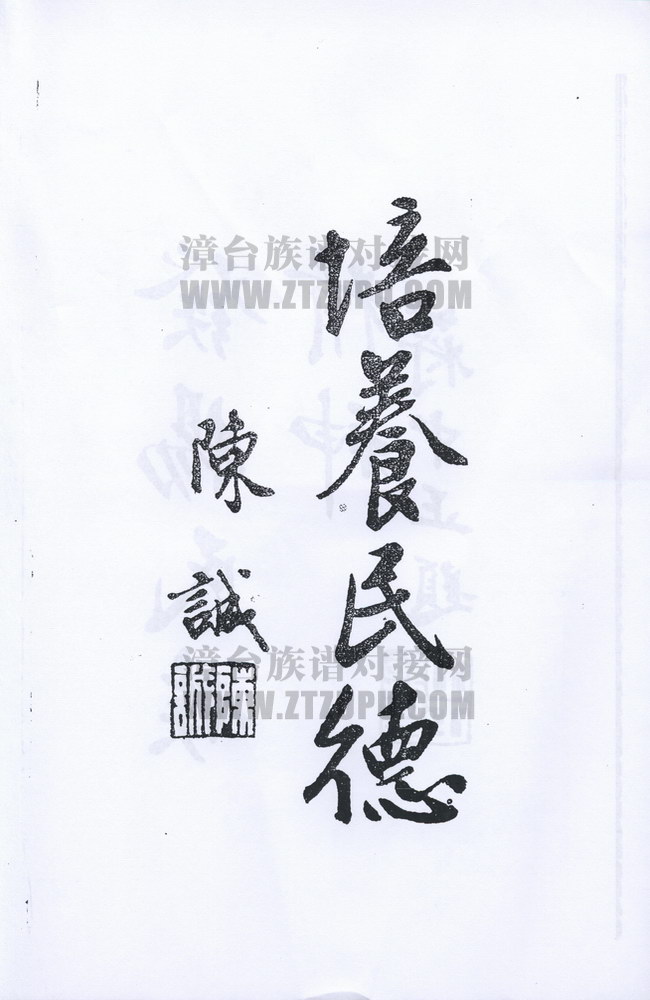 培養民德
陳誠
陳誠
漳台族谱对接网
WWW.ZTZUPU.COM
漳台族谱对接网
WWW.ZTZUPU.COM